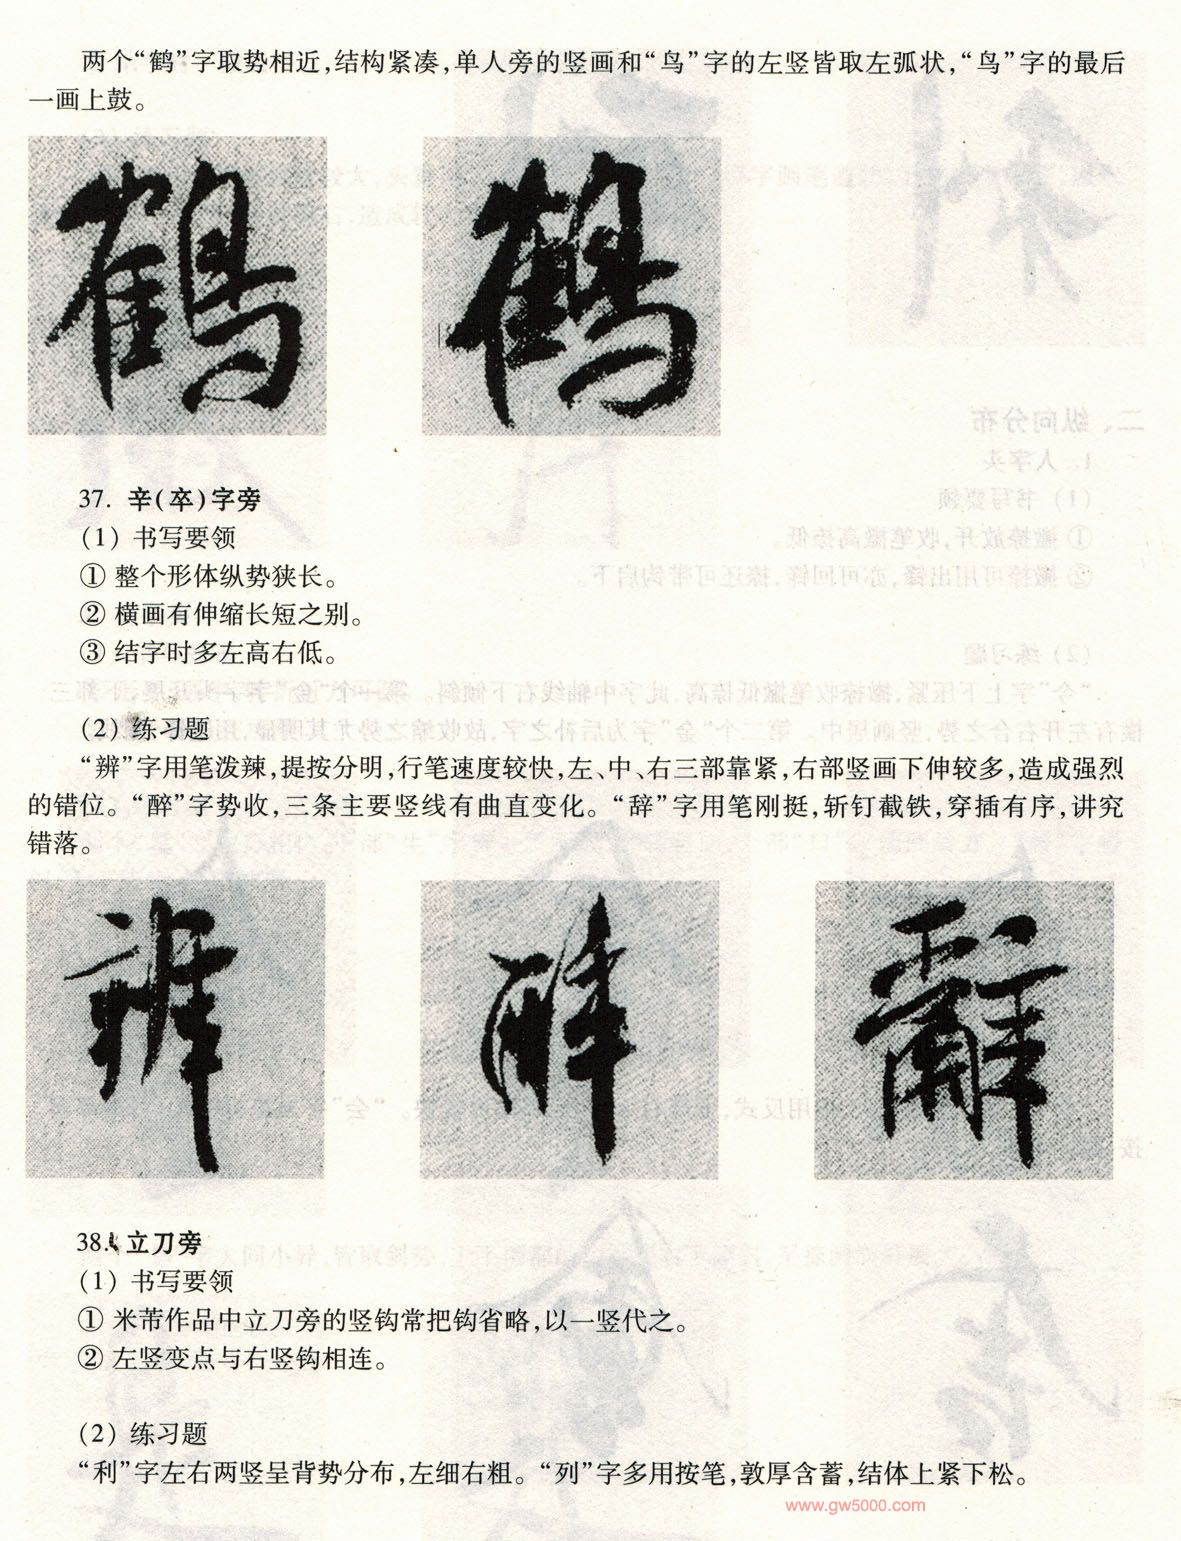 两个“鹤”字取势相近，结构紧凑，单人旁的竖画和“鸟”字的左竖皆取左弧状，“鸟”字的最后
一画上鼓。
鹤 鹤
37. 辛（卒）字旁
(1) 书写要领
① 整个形体纵势狭长。
② 横画有伸缩长短之别。
③ 结字时多左高右低。
(2) 练习题
“辨”字用笔泼辣，提按分明，行笔速度较快，左、中、右三部靠紧，右部竖画下伸较多，造成强烈
的错位。“醉”字势收，三条主要竖线有曲直变化。“辞”字用笔刚挺，斩钉截铁，穿插有序，讲究
错落。
辨 醉 辭
38. 立刀旁
(1) 书写要领
① 米芾作品中立刀旁的竖钩常把钩省略，以一竖代之。
② 左竖变点与右竖钩相连。
(2) 练习题
“利”字左右两竖呈背势分布，左细右粗。“列”字多用按笔，敦厚含蓄，结体上紧下松。
www.gw5000.com